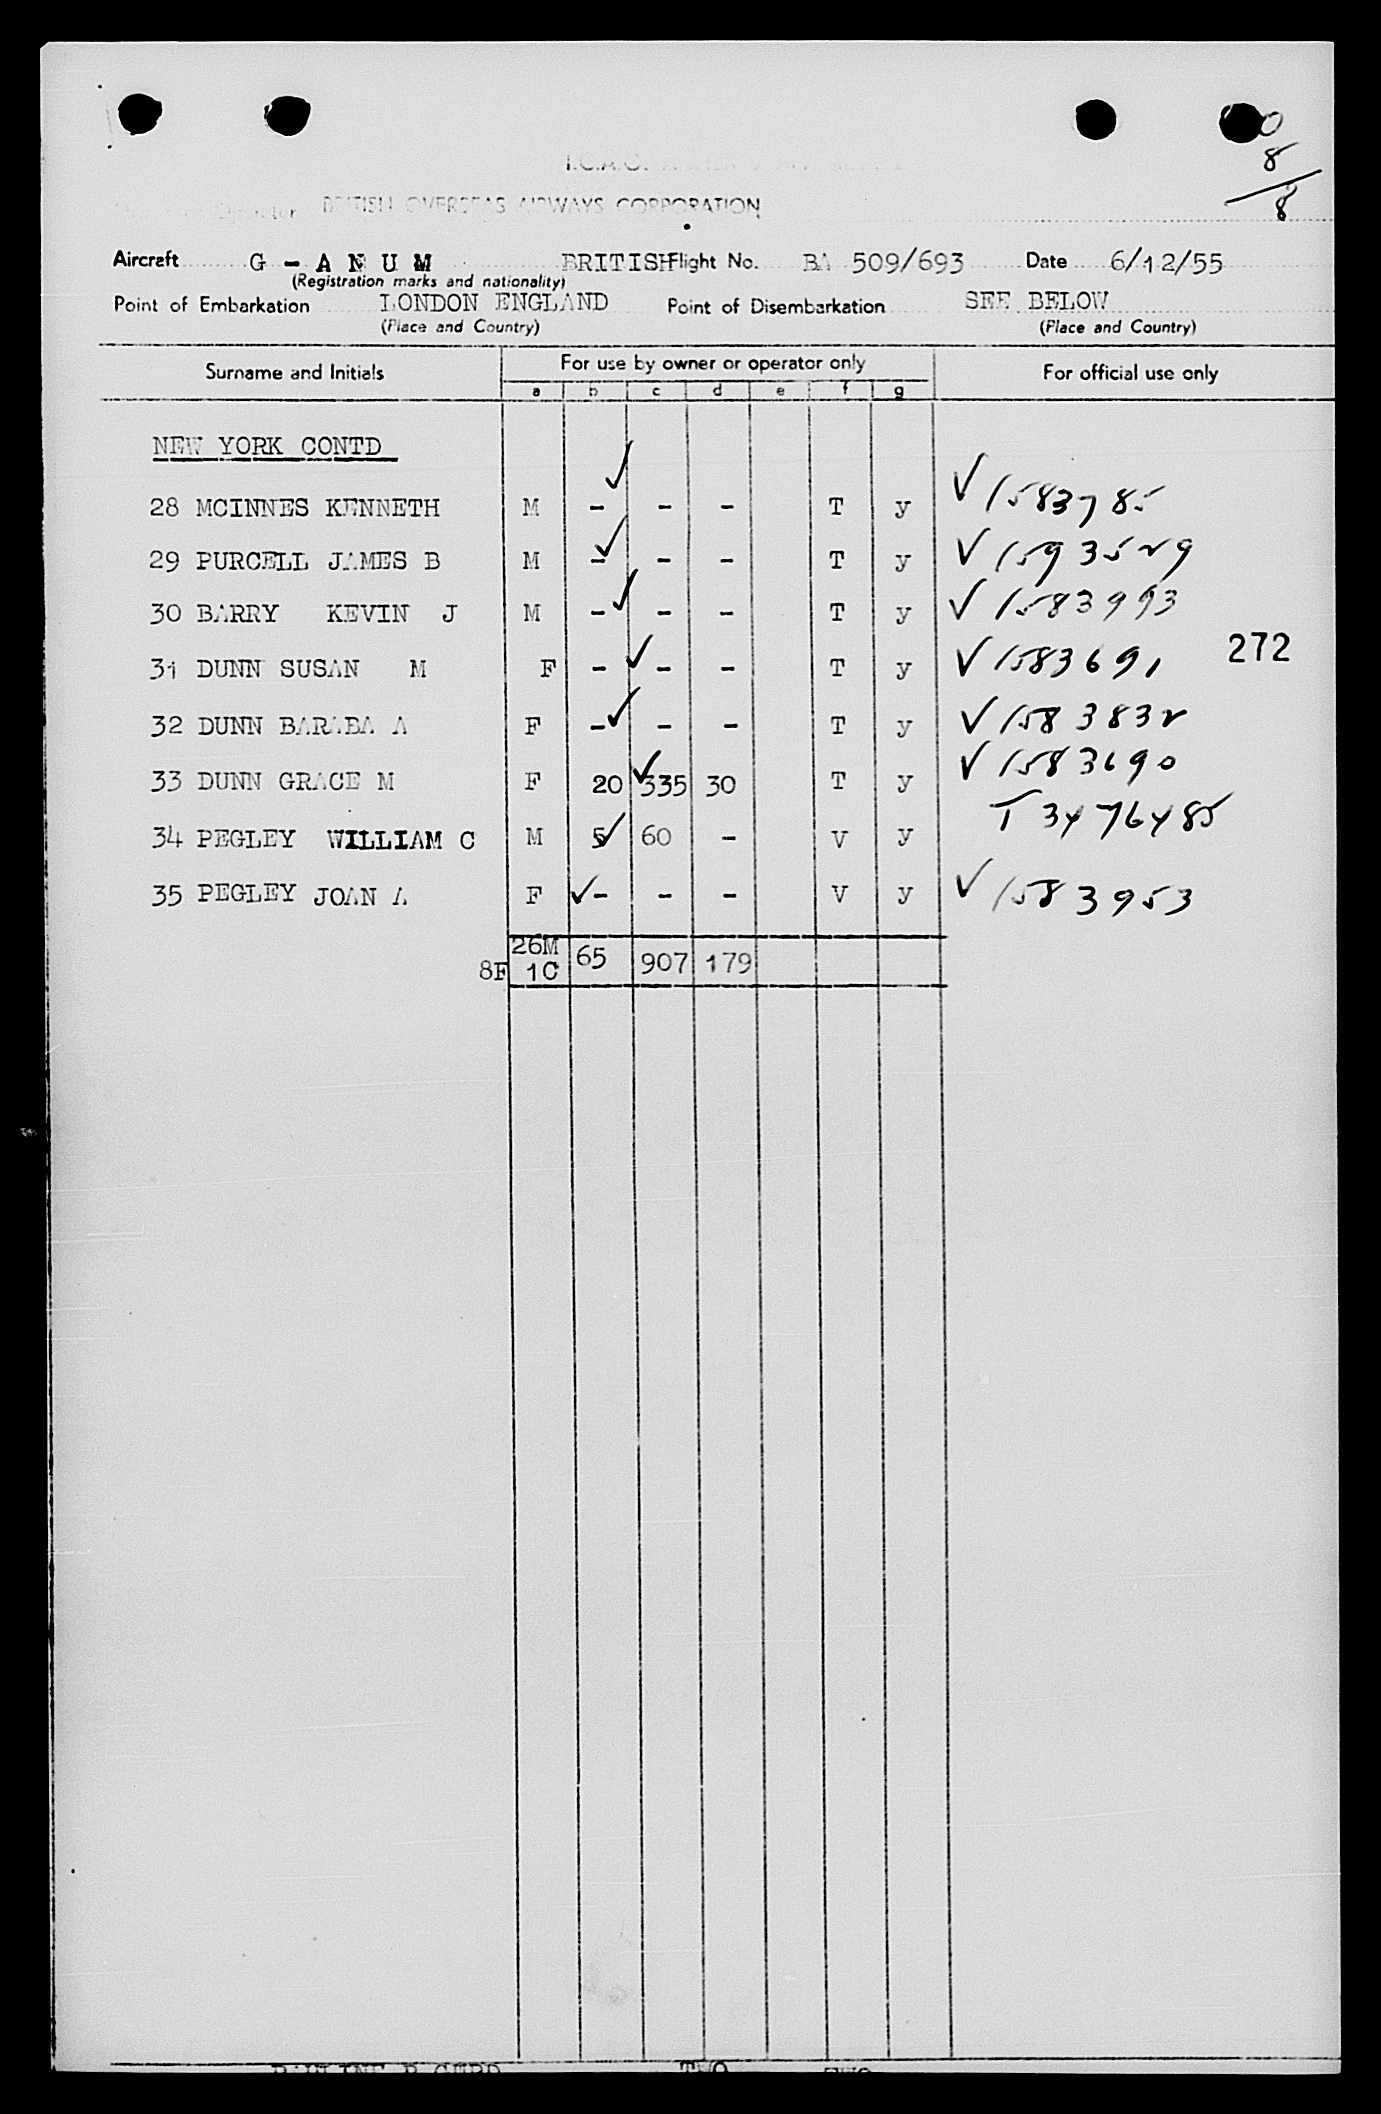 0
8
8
I.C.A.O.
BRITISH OVERSEAS AIRWAYS CORPORATION
Aircraft G - A N U M BRITISH Flight No. BA 509/693 Date 6/12/55
(Registration marks and nationality)
Point of Embarkation LONDON ENGLAND Point of Disembarkation SEE BELOW
(Place and Country) (Place and Country)
Surname and Initials For use by owner or operator only For official use only
a b c d e f g
NEW YORK CONTD
28 MCINNES KENNETH M - - - T y √ 1583785
29 PURCELL JAMES B M - - - T y √ 1593529
30 BARRY KEVIN J M - - - T y √ 1583993
31 DUNN SUSAN M F - - - T y √ 1583691 272
32 DUNN BARABA A F - - - T y √ 1583832
33 DUNN GRACE M F 20 335 30 T y √ 1583690
34 PEGLEY WILLIAM C M 5 60 - V y T3476485
35 PEGLEY JOAN A F - - - V y √ 1583953
26M 65 907 179
8F 1C
TWO